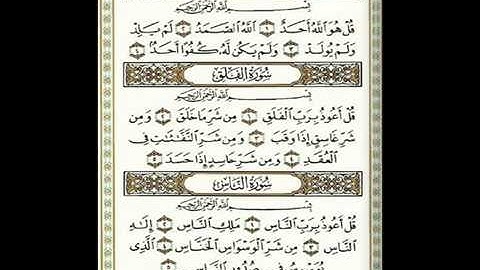 بِسْمِ ٱللَّهِ ٱلرَّحْمَـٰنِ ٱلرَّحِيمِ
قُلْ هُوَ ٱللَّهُ أَحَدٌ ١ ٱللَّهُ ٱلصَّمَدُ ٢ لَمْ يَلِدْ
وَلَمْ يُولَدْ ٣ وَلَمْ يَكُن لَّهُۥ كُفُوًا أَحَدٌۢ ٤
سُورَةُ ٱلْفَلَقِ
بِسْمِ ٱللَّهِ ٱلرَّحْمَـٰنِ ٱلرَّحِيمِ
قُلْ أَعُوذُ بِرَبِّ ٱلْفَلَقِ ١ مِن شَرِّ مَا خَلَقَ ٢ وَمِن
شَرِّ غَاسِقٍ إِذَا وَقَبَ ٣ وَمِن شَرِّ ٱلنَّفَّـٰثَـٰتِ فِى
ٱلْعُقَدِ ٤ وَمِن شَرِّ حَاسِدٍ إِذَا حَسَدَ ٥
سُورَةُ ٱلنَّاسِ
بِسْمِ ٱللَّهِ ٱلرَّحْمَـٰنِ ٱلرَّحِيمِ
قُلْ أَعُوذُ بِرَبِّ ٱلنَّاسِ ١ مَلِكِ ٱلنَّاسِ ٢ إِلَـٰهِ
ٱلنَّاسِ ٣ مِن شَرِّ ٱلْوَسْوَاسِ ٱلْخَنَّاسِ ٤ ٱلَّذِى
يُوَسْوِسُ فِى صُدُورِ ٱلنَّاسِ ٥